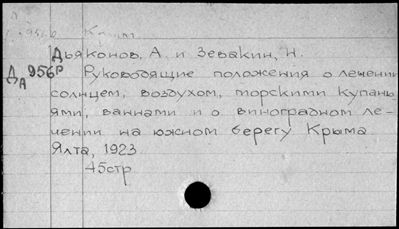 Крым.
Дьяконов, А. и Зевакин, Н.
ДА 956Р Руководящие положения о лечении
солнцем, воздухом, морскими купань
ями, ваннами и о виноградном ле-
чении на южном берегу Крыма
Ялта, 1923
45стр